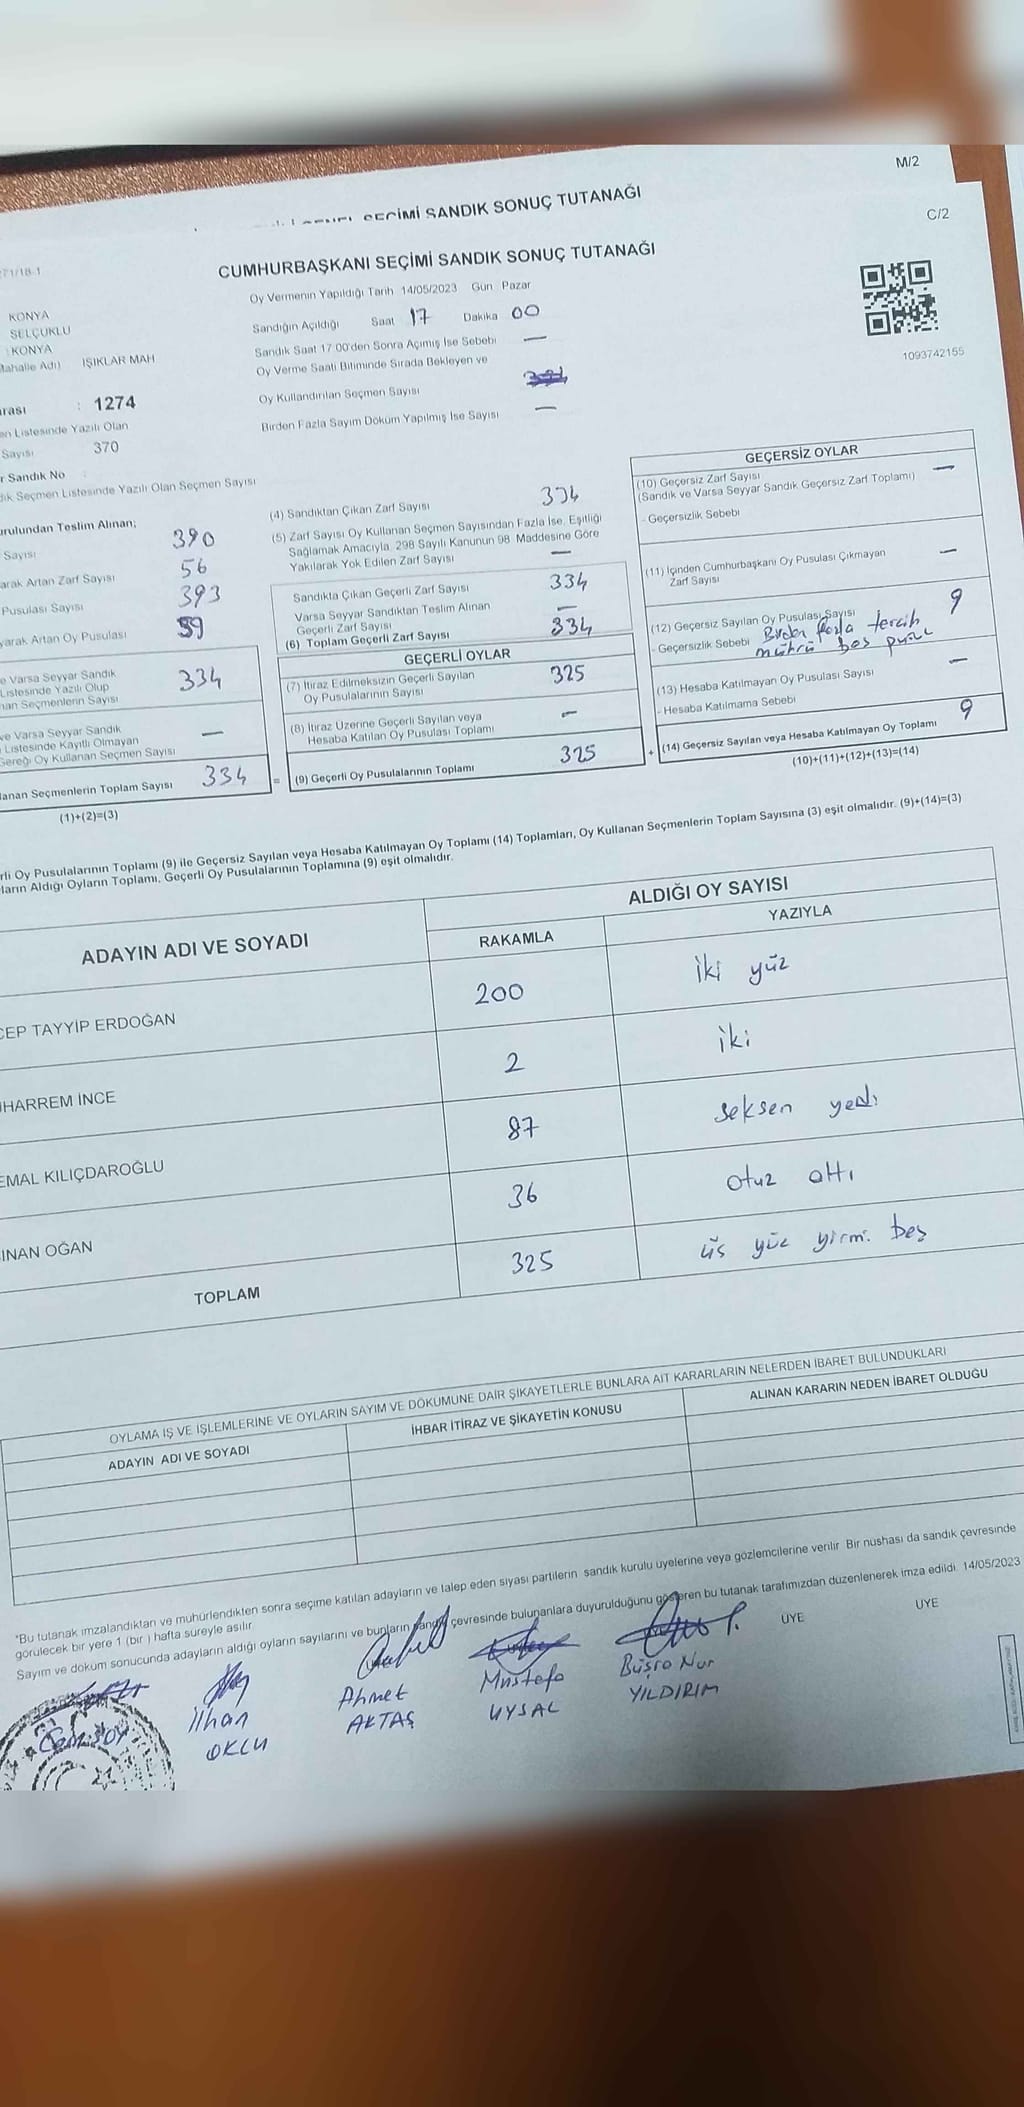 M/2
SEÇİMİ SANDIK SONUÇ TUTANAĞI
C/2
CUMHURBAŞKANI SEÇİMİ SANDIK SONUÇ TUTANAĞI
Oy Vermenin Yapıldığı Tarih 14/05/2023 Gün Pazar
KONYA
SELÇUKLU
KONYA
Mahalle Adı) IŞIKLAR MAH
Sandığın Açıldığı Saat 17 Dakika 00
Sandık Saat 17:00'den Sonra Açımış İse Sebebi —
Oy Verme Saati Bitiminde Sırada Bekleyen ve
Oy Kullandırılan Seçmen Sayısı
Birden Fazla Sayım Döküm Yapılmış İse Sayısı —
1093742155
: 1274
Listesinde Yazılı Olan
Sayısı 370
Sandık No :
Seçmen Listesinde Yazılı Olan Seçmen Sayısı
Teslim Alınan;
Sayısı 390
Artan Zarf Sayısı 56
Pusulası Sayısı 393
Artan Oy Pusulası 59
ve Varsa Seyyar Sandık
Listesinde Yazılı Olup
Seçmenlerin Sayısı 334
ve Varsa Seyyar Sandık
Listesinde Kayıtlı Olmayan
Gereği Oy Kullanan Seçmen Sayısı —
Seçmenlerin Toplam Sayısı 334
(1)+(2)=(3)
(4) Sandıktan Çıkan Zarf Sayısı 334
(5) Zarf Sayısı Oy Kullanan Seçmen Sayısından Fazla İse, Eşitliği
Sağlamak Amacıyla, 298 Sayılı Kanunun 98. Maddesine Göre
Yakılarak Yok Edilen Zarf Sayısı —
Sandıkta Çıkan Geçerli Zarf Sayısı 334
Varsa Seyyar Sandıktan Teslim Alınan
Geçerli Zarf Sayısı —
(6) Toplam Geçerli Zarf Sayısı 334
GEÇERLİ OYLAR
(7) İtiraz Edilmeksizin Geçerli Sayılan
Oy Pusulalarının Sayısı 325
(8) İtiraz Üzerine Geçerli Sayılan veya
Hesaba Katılan Oy Pusulası Toplamı —
= (9) Geçerli Oy Pusulalarının Toplamı 325
GEÇERSİZ OYLAR
(10) Geçersiz Zarf Sayısı
(Sandık ve Varsa Seyyar Sandık Geçersiz Zarf Toplamı) —
- Geçersizlik Sebebi
(11) İçinden Cumhurbaşkanı Oy Pusulası Çıkmayan
Zarf Sayısı —
(12) Geçersiz Sayılan Oy Pusulası Sayısı 9
- Geçersizlik Sebebi Birden fazla tercih
mührü boş
(13) Hesaba Katılmayan Oy Pusulası Sayısı —
- Hesaba Katılmama Sebebi
+ (14) Geçersiz Sayılan veya Hesaba Katılmayan Oy Toplamı 9
(10)+(11)+(12)+(13)=(14)
Oy Pusulalarının Toplamı (9) ile Geçersiz Sayılan veya Hesaba Katılmayan Oy Toplamı (14) Toplamları, Oy Kullanan Seçmenlerin Toplam Sayısına (3) eşit olmalıdır. (9)+(14)=(3)
Aldığı Oyların Toplamı, Geçerli Oy Pusulalarının Toplamına (9) eşit olmalıdır.
ADAYIN ADI VE SOYADI
ALDIĞI OY SAYISI
RAKAMLA YAZIYLA
CEP TAYYİP ERDOĞAN 200 iki yüz
HARREM İNCE 2 iki
EMAL KILIÇDAROĞLU 87 seksen yedi
İNAN OĞAN 36 otuz altı
TOPLAM 325 üs yüz yirmi beş
OYLAMA İŞ VE İŞLEMLERİNE VE OYLARIN SAYIM VE DÖKÜMÜNE DAİR ŞİKAYETLERLE BUNLARA AİT KARARLARIN NELERDEN İBARET BULUNDUKLARI
ADAYIN ADI VE SOYADI İHBAR İTİRAZ VE ŞİKAYETİN KONUSU ALINAN KARARIN NEDEN İBARET OLDUĞU
"Bu tutanak imzalandıktan ve mühürlendikten sonra seçime katılan adayların ve talep eden siyasi partilerin sandık kurulu üyelerine veya gözlemcilerine verilir. Bir nüshası da sandık çevresinde
görülecek bir yere 1 (bir) hafta süreyle asılır.
Sayım ve döküm sonucunda adayların aldığı oyların sayılarını ve bunların sandık çevresinde bulunanlara duyurulduğunu gösteren bu tutanak tarafımızdan düzenlenerek imza edildi. 14/05/2023
ÜYE ÜYE
İlhan
OKLU
Ahmet
AKTAŞ
Mustafa
UYSAL
Büşra Nur
YILDIRIM